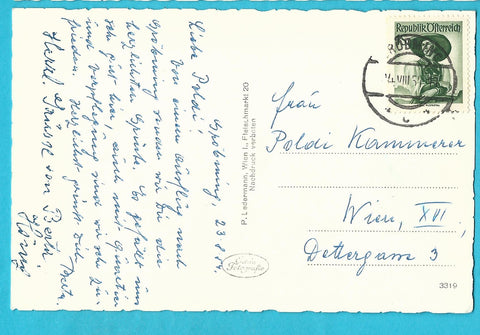 Gröbming, 23.8.54.
Liebe Poldi!
Von einem Ausflug nach
Gröbming senden wir Dir die
herzlichsten Grüße. Es gefällt uns
sehr gut hier, auch mit Quartier
und Verpflegung sind wir sehr zu-
frieden. Herzlichst grüßt Dich
Herzl. Grüsse von Berta
P. Ledermann, Wien I., Fleischmarkt 20
Nachdruck verboten
Echte
Fotografie
Republik Österreich
GRÖBMING
VIII
Frau
Poldi Kammerer
Wien, XVI.
Dettergasse 3
3319